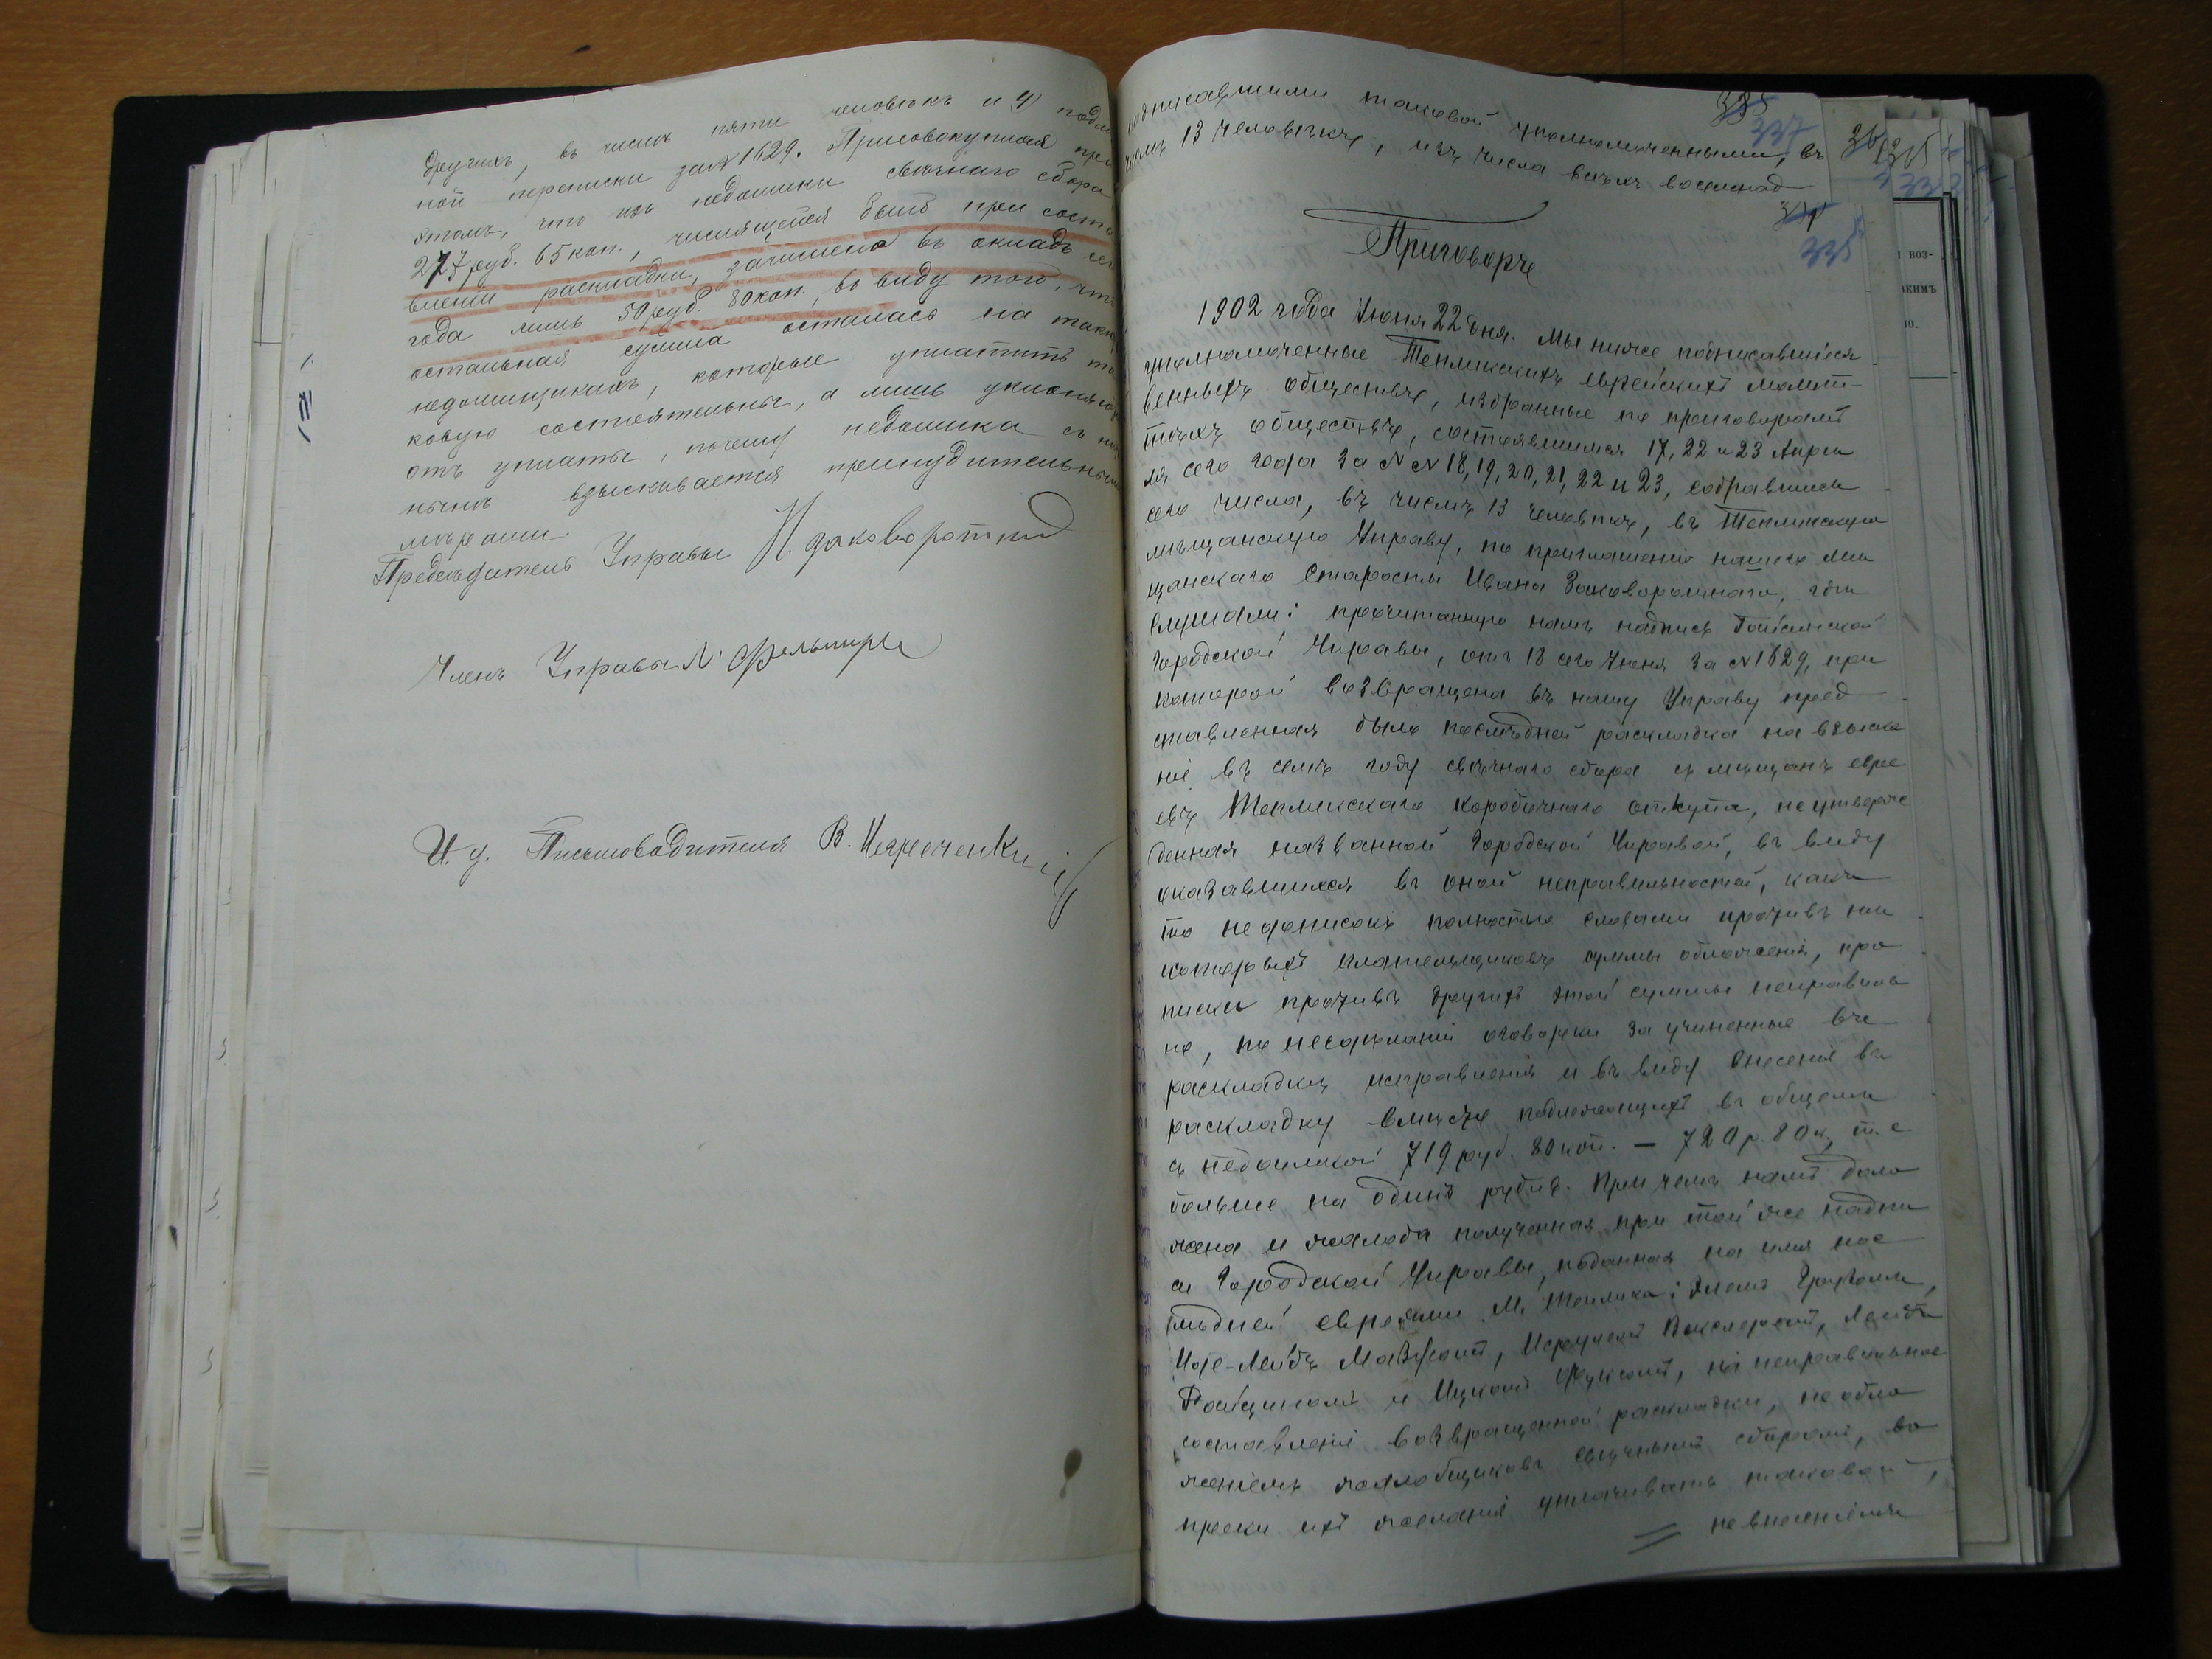 другихъ, въ числѣ пяти человѣкъ и 4) подлин
ной переписки за № 1629. Присовокупляя при
этомъ, что изъ недоимки свѣчнаго сбора
277 руб. 65 коп., числящейся было при соста
вленіи раскладки, зачислено въ окладъ сего
года лишь 50 руб. 80 коп., въ виду того, что
остальная сумма осталась на такихъ
недоимщикахъ, которые уплатить та
ковую состоятельны, а лишь уклоняются
отъ уплаты, почему недоимка съ
взыскивается принудительными
мѣрами.
Предсѣдатель Управы И. Заковоротный
Членъ Управы
И. д. Письмоводителя В.
подписавшими таковой уполномоченными, въ
числѣ 13 человѣкъ, изъ числа всѣхъ восемнад
335
337
335
Приговоръ
1902 года Іюня 22 дня. Мы ниже подписавшіеся
уполномоченные Тепликскихъ еврейскихъ молит-
венныхъ обществъ, избранные по приговорамъ
тѣхъ обществъ, состоявшимся 17, 22 и 23 Апрѣ
ля сего года за №№ 18, 19, 20, 21, 22 и 23, собравшись
сего числа, въ числѣ 13 человѣкъ, въ Тепликскую
мѣщанскую Управу, по приглашенію нашего мѣ
щанскаго Старосты Ивана Заковоротнаго, гдѣ
слушали: прочитанную намъ надпись Гайсинской
Городской Управы, отъ 18 сего Іюня за № 1629, при
которой возвращена въ нашу Управу пред
ставленная было послѣдней раскладка на взыска
ніе въ семъ году свѣчнаго сбора съ мѣщанъ евре
евъ Тепликскаго коробочнаго откупа, неутверж
денная названной Городской Управой, въ виду
оказавшихся въ оной неправильностей, какъ
то недописокъ полностью словами противъ нѣ
которыхъ плательщиковъ суммы обложенія, про
писки противъ другихъ этой суммы неправиль
но, по несдѣланіи оговорки за учиненные въ
раскладкѣ исправленія и въ виду внесенія въ
раскладку вмѣсто подлежащихъ въ общемъ
съ недоимкой 719 руб. 80 коп. — 720 р. 80 к., т. е.
больше на одинъ рубль. При чемъ намъ доло
жена и жалоба полученная при той же надпи
си Городской Управы, поданная на имя пос
лѣдней евреями м. Теплика:
Мазуромъ, Лейбъ
и Ицкомъ Фуксомъ, на неправильное
составленіе возвращенной раскладки, не обло
женіемъ жалобщиковъ свѣчнымъ сборомъ, во
преки ихъ желанія уплачивать таковой,
невнесеніемъ